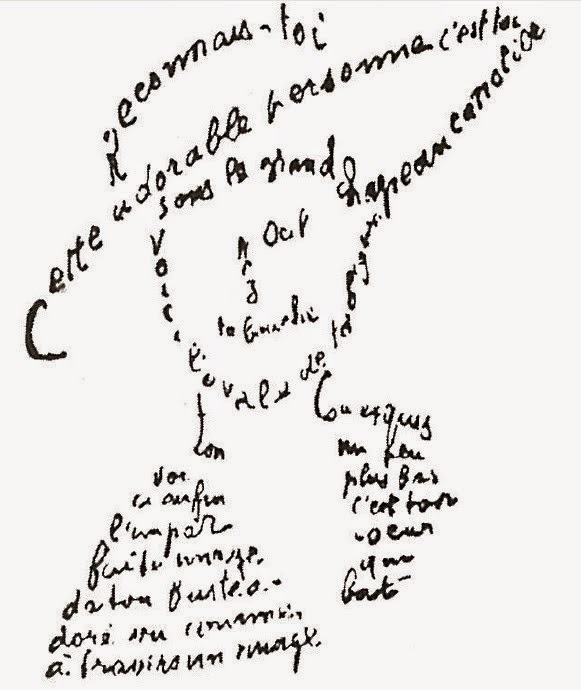 Reconnais-toi
Cette adorable personne c'est toi
sous le grand chapeau canotier
Oeil
Nez
ta bouche
Voici l'ovale de ta figure
Ton cou exquis
Voi
ci enfin
l'impar
faite image
de ton buste a
doré vu comme
à travers un nuage
un peu
plus bas
c'est ton
coeur
qui
bat